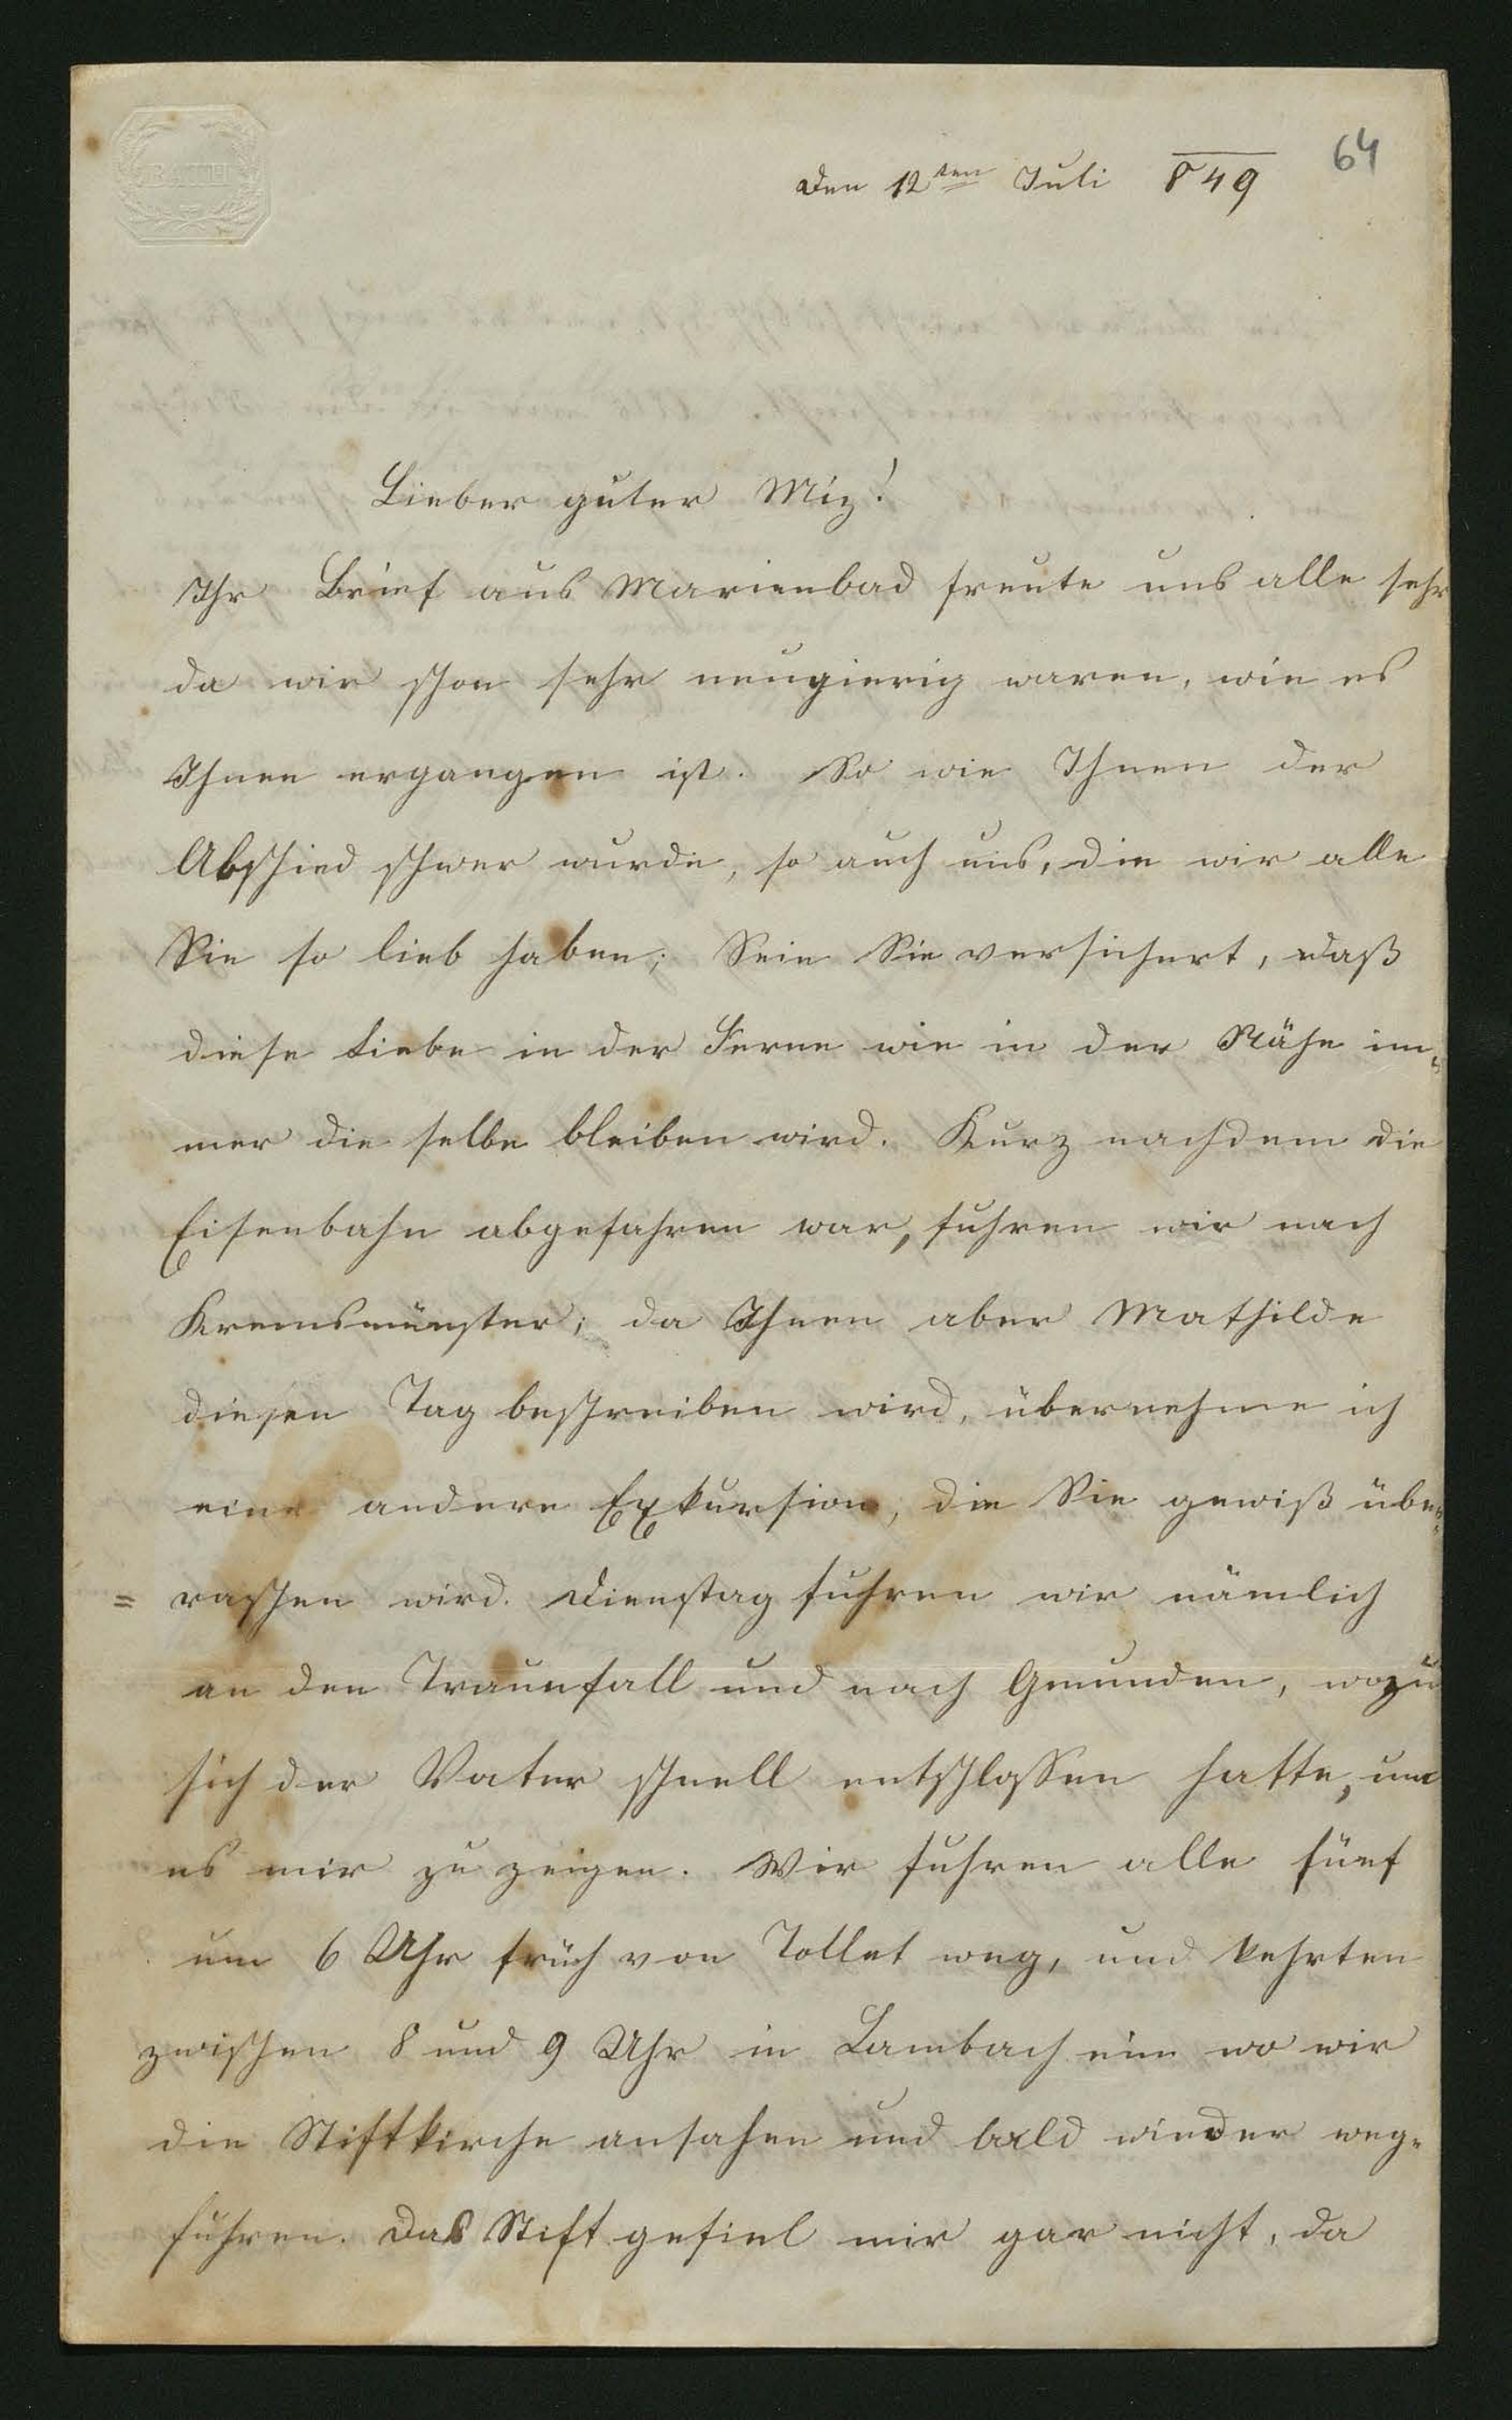 BATH
64
Den 12ten Juli 849
Lieber guter Miz!
Ihr Brief aus Marienbad freute uns alle sehr
da wir schon sehr neugierig waren, wie es
Ihnen ergangen ist. So wie Ihnen der
Abschied schwer wurde, so auch uns, die wir alle
Sie so lieb haben; Sein Sie versichert, daß
diese Liebe in der Ferne wie in der Nähe im=
mer die selbe bleiben wird. Kurz nachdem die
Eisenbahn abgefahren war, fuhren wir nach
Kremsmünster; da Ihnen aber Mathilde
diesen Tag beschreiben wird, übernehme ich
eine andere Exkursion, die Sie gewiß über=
=raschen wird. Dienstag fuhren wir nämlich
an den Traunfall und nach Gmunden, wozu
sich der Vater schnell entschlossen hatte, um
es mir zu zeigen. Wir fuhren alle fünf
um 6 Uhr früh von Tollet weg, und kehrten
zwischen 8 und 9 Uhr in Lambach ein wo wir
die Stiftkirche ansahen und bald wieder weg=
fuhren. Das Stift gefiel mir gar nicht, da